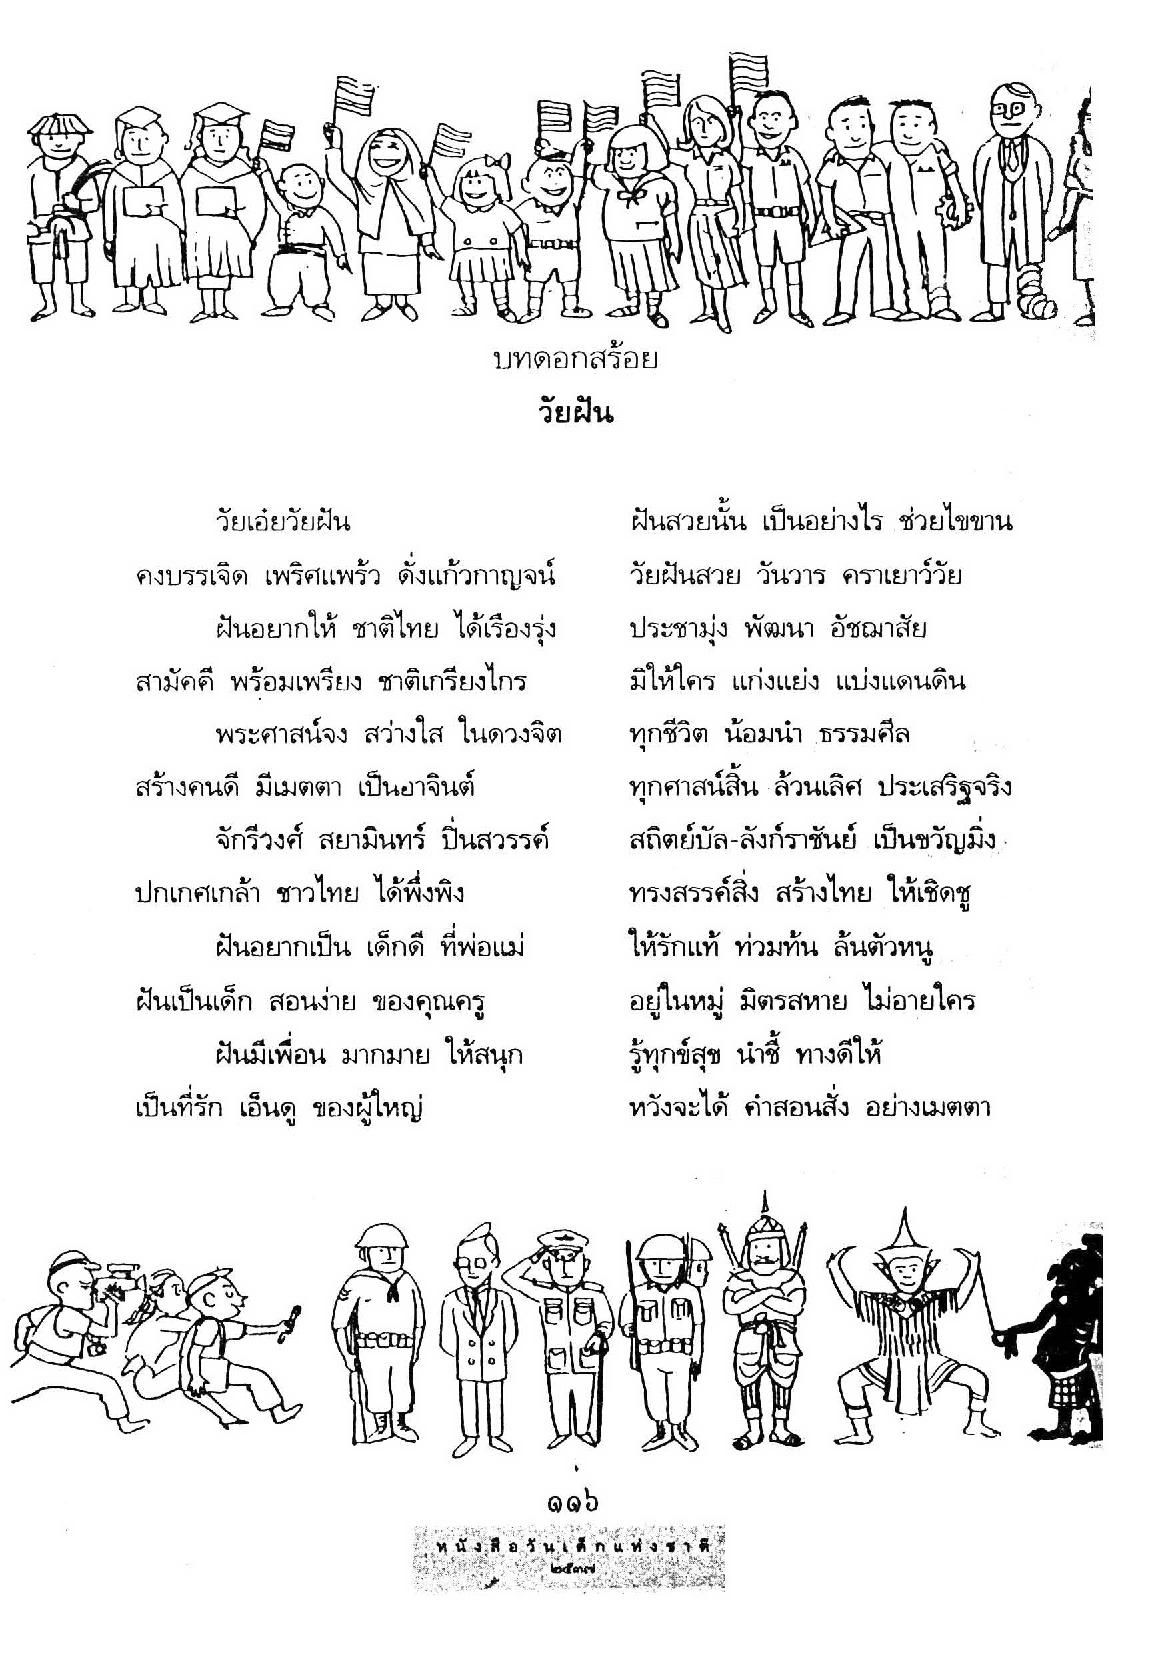 บทดอกสร้อย
วัยฝัน
วัยเอ๋ยวัยฝัน ฝันสวยนั้น เป็นอย่างไร ช่วยไขขาน
คงบรรเจิด เพริศแพร้ว ดั่งแก้วกาญจน์ วัยฝันสวย วันวาร คราเยาว์วัย
ฝันอยากให้ ชาติไทย ได้เรืองรุ่ง ประชามุ่ง พัฒนา อัชฌาสัย
สามัคคี พร้อมเพรียง ชาติเกรียงไกร มิให้ใคร แก่งแย่ง แบ่งแดนดิน
พระศาสน์จง สว่างใส ในดวงจิต ทุกชีวิต น้อมนำ ธรรมศีล
สร้างคนดี มีเมตตา เป็นอาจินต์ ทุกศาสน์สิ้น ล้วนเลิศ ประเสริฐจริง
จักรีวงศ์ สยามินทร์ ปิ่นสวรรค์ สถิตย์บัล-ลังก์ราชันย์ เป็นขวัญมิ่ง
ปกเกศเกล้า ชาวไทย ได้พึ่งพิง ทรงสรรค์สิ่ง สร้างไทย ให้เชิดชู
ฝันอยากเป็น เด็กดี ที่พ่อแม่ ให้รักแท้ ท่วมท้น ล้นตัวหนู
ฝันเป็นเด็ก สอนง่าย ของคุณครู อยู่ในหมู่ มิตรสหาย ไม่อายใคร
ฝันมีเพื่อน มากมาย ให้สนุก รู้ทุกข์สุข นำชี้ ทางดีให้
เป็นที่รัก เอ็นดู ของผู้ใหญ่ หวังจะได้ คำสอนสั่ง อย่างเมตตา
๑๑๖
หนังสือวันเด็กแห่งชาติ
๒๕๓๗